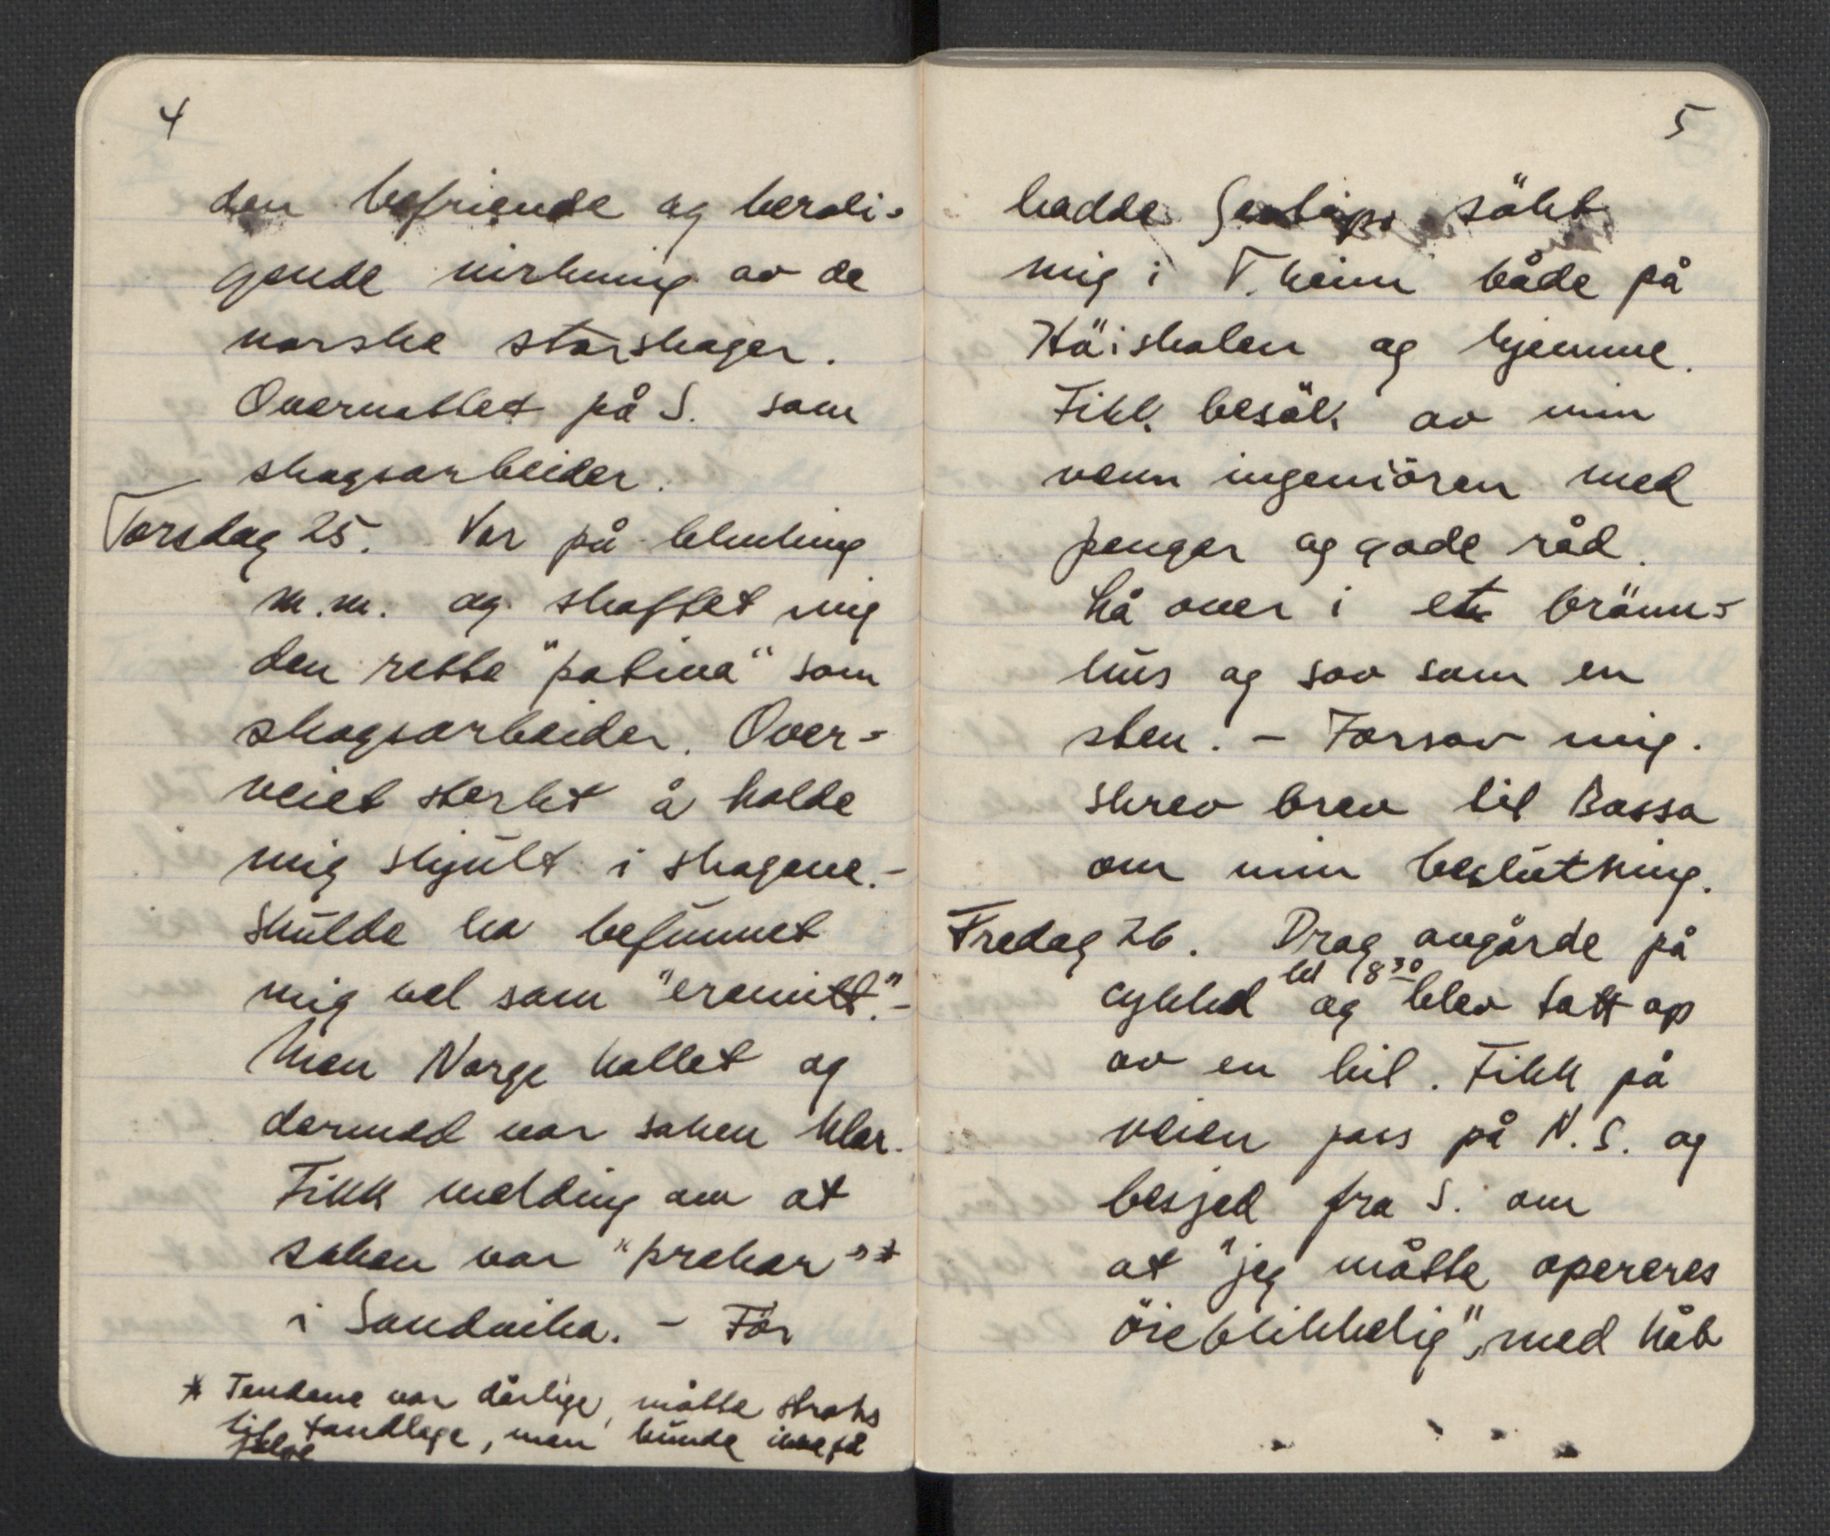 4
den befriende og beroli-
gende virkning av de
norske storskoger.
Overnattet på S. som
skogsarbeider.
Torsdag 25. Var på klubbing
m.m. og skaffet mig
den rette "patina" som
skogsarbeider. Over-
veiet sterkt å holde
mig skjult i skogene.-
Skulde ha befunnet
mig vel som "eremitt".-
Men Norge kallet og
dermed var saken klar.
Fikk melding om at
saken var "prekær"*
i Sandvika. - Før
* Tendene var dårlige, måtte straks
til tandlege, men kunde ikke få
følge
5
hadde Gestapo søkt
mig i T.heim både på
Höiskolen og hjemme.
Fikk besök av min
venn ingeniören med
penger og gode råd.
Lå over i et bränn-
hus og sov som en
sten. - Forsov mig.
Skrev brev til Bassa
om min beslutning.
Fredag 26. Drog avgårde på
kl 18³⁰
cykkel og blev tatt op
av en bil. Fikk på
veien pass på N.S. og
besjed fra S. om
at "jeg måtte opereres
öieblikkelig", med håb